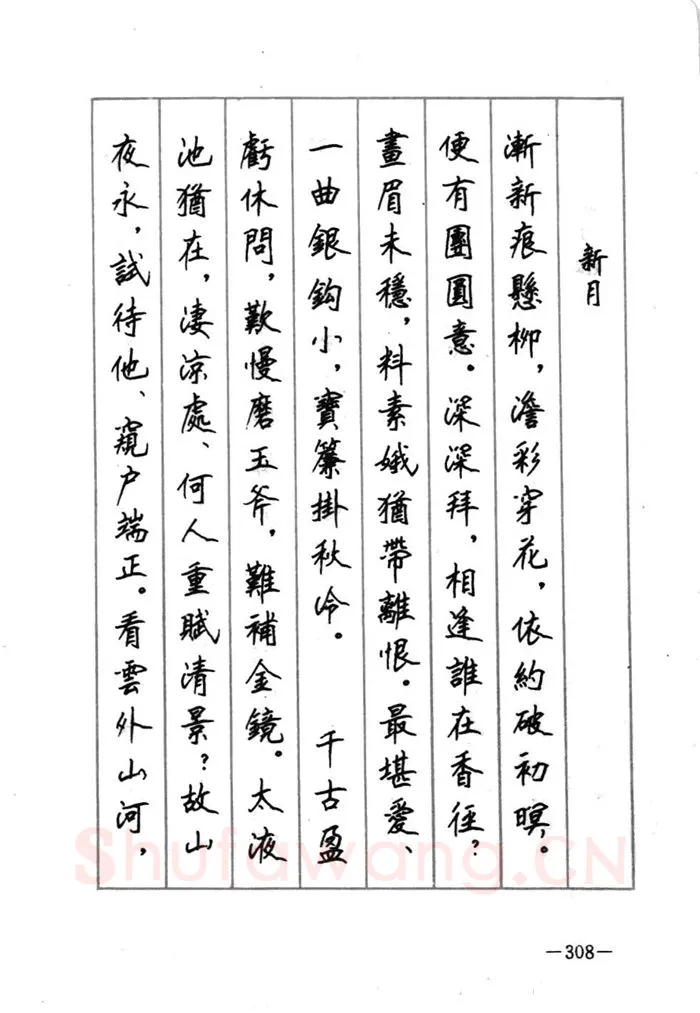 新月
漸新痕懸柳，澹彩穿花，依約破初暝。
便有團圓意。深深拜，相逢誰在香徑？
畫眉未穩，料素娥猶帶離恨。最堪愛、
一曲銀鈎小，寶簾掛秋冷。　千古盈
虧休問，歎慢磨玉斧，難補金鏡。太液
池猶在，淒涼處、何人重賦清景？故山
夜永，試待他、窺户端正。看雲外山河，
Shufawang.CN
—308—